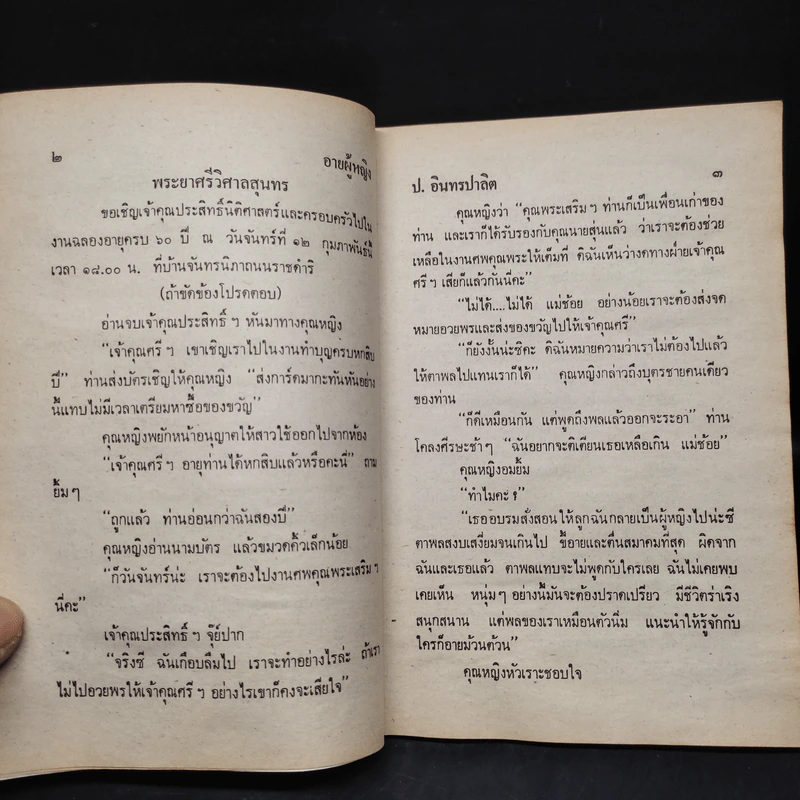 ๒
อายผู้หญิง
พระยาศรีวิศาลสุนทร
ขอเชิญเจ้าคุณประสิทธิ์นิติศาสตร์และครอบครัวไปใน
งานฉลองอายุครบ ๖๐ ปี ณ วันจันทร์ที่ ๑๒ กุมภาพันธ์นี้
เวลา ๑๘.๐๐ น. ที่บ้านจันทรนิภาถนนราชดำริ
(ถ้าขัดข้องโปรดตอบ)
อ่านจบเจ้าคุณประสิทธิ์ ฯ หันมาทางคุณหญิง
“เจ้าคุณศรี ฯ เขาเชิญเราไปในงานทำบุญครบหกสิบ
ปี” ท่านส่งบัตรเชิญให้คุณหญิง “ส่งการ์ดมากะทันหันอย่าง
นี้แทบไม่มีเวลาเตรียมหาซื้อของขวัญ”
คุณหญิงพยักหน้าอนุญาตให้สาวใช้ออกไปจากห้อง
“เจ้าคุณศรี ฯ อายุท่านได้หกสิบแล้วหรือคะนี่” ถาม
ยิ้มๆ
“ถูกแล้ว ท่านอ่อนกว่าฉันสองปี”
คุณหญิงอ่านนามบัตร แล้วขมวดคิ้วเล็กน้อย
“ก็วันจันทร์น่ะ เราจะต้องไปงานศพคุณพระเสริม ฯ
นี่คะ”
เจ้าคุณประสิทธิ์ ฯ จุ๊ย์ปาก
“จริงซี ฉันเกือบลืมไป เราจะทำอย่างไรล่ะ ถ้าเรา
ไม่ไปอวยพรให้เจ้าคุณศรี ฯ อย่างไรเขาก็คงจะเสียใจ”
ป. อินทรปาลิต
๓
คุณหญิงว่า “คุณพระเสริม ฯ ท่านก็เป็นเพื่อนเก่าของ
ท่าน และเราก็ได้รับรองกับคุณนายสุ่นแล้ว ว่าเราจะต้องช่วย
เหลือในงานศพคุณพระให้เต็มที่ ดิฉันเห็นว่างดทางฝ่ายเจ้าคุณ
ศรี ฯ เสียก็แล้วกันนี่คะ”
“ไม่ได้....ไม่ได้ แม่ช้อย อย่างน้อยเราจะต้องส่งจด
หมายอวยพรและส่งของขวัญไปให้เจ้าคุณศรี”
“ก็ยังงั้นน่ะซิคะ ดิฉันหมายความว่าเราไม่ต้องไปแล้ว
ให้ตาพลไปแทนเราก็ได้” คุณหญิงกล่าวถึงบุตรชายคนเดียว
ของท่าน
“ก็ดีเหมือนกัน แต่พูดถึงพลแล้วออกจะระอา” ท่าน
โคลงศีรษะช้าๆ “ฉันอยากจะติเตียนเธอเหลือเกิน แม่ช้อย”
คุณหญิงอมยิ้ม
“ทำไมคะ ?”
“เธออบรมสั่งสอนให้ลูกฉันกลายเป็นผู้หญิงไปน่ะซี
ตาพลสงบเสงี่ยมจนเกินไป ขี้อายและตื่นสมาคมที่สุด ผิดจาก
ฉันและเธอแล้ว ตาพลแทบจะไม่พูดกับใครเลย ฉันไม่เคยพบ
เคยเห็น หนุ่มๆ อย่างนี้มันจะต้องปราดเปรียว มีชีวิตร่าเริง
สนุกสนาน แต่พลของเราเหมือนตัวนิ่ม แนะนำให้รู้จักกับ
ใครก็อายม้วนต้วน”
คุณหญิงหัวเราะชอบใจ